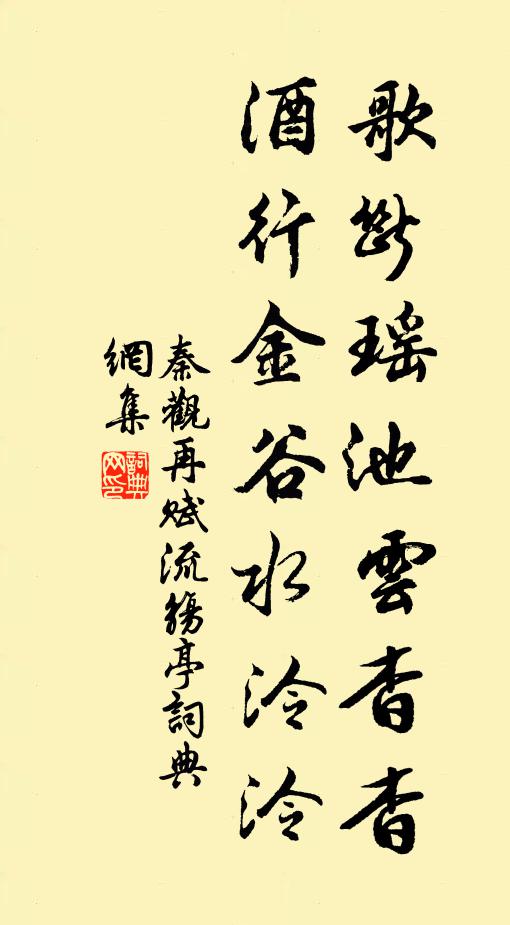 歌斷瑤池雲杳杳
酒行金谷水泠泠
秦觀再賦流觴亭詞典
網集
詞典網印